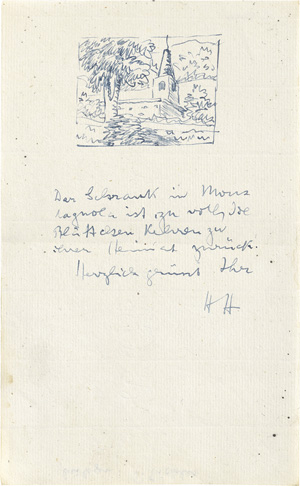 Der Schrank in Mon
tagnola ist zu voll, die
Blätter kehren zu
ihrer Heimat zurück.
Herzlich grüsst Ihr
HH